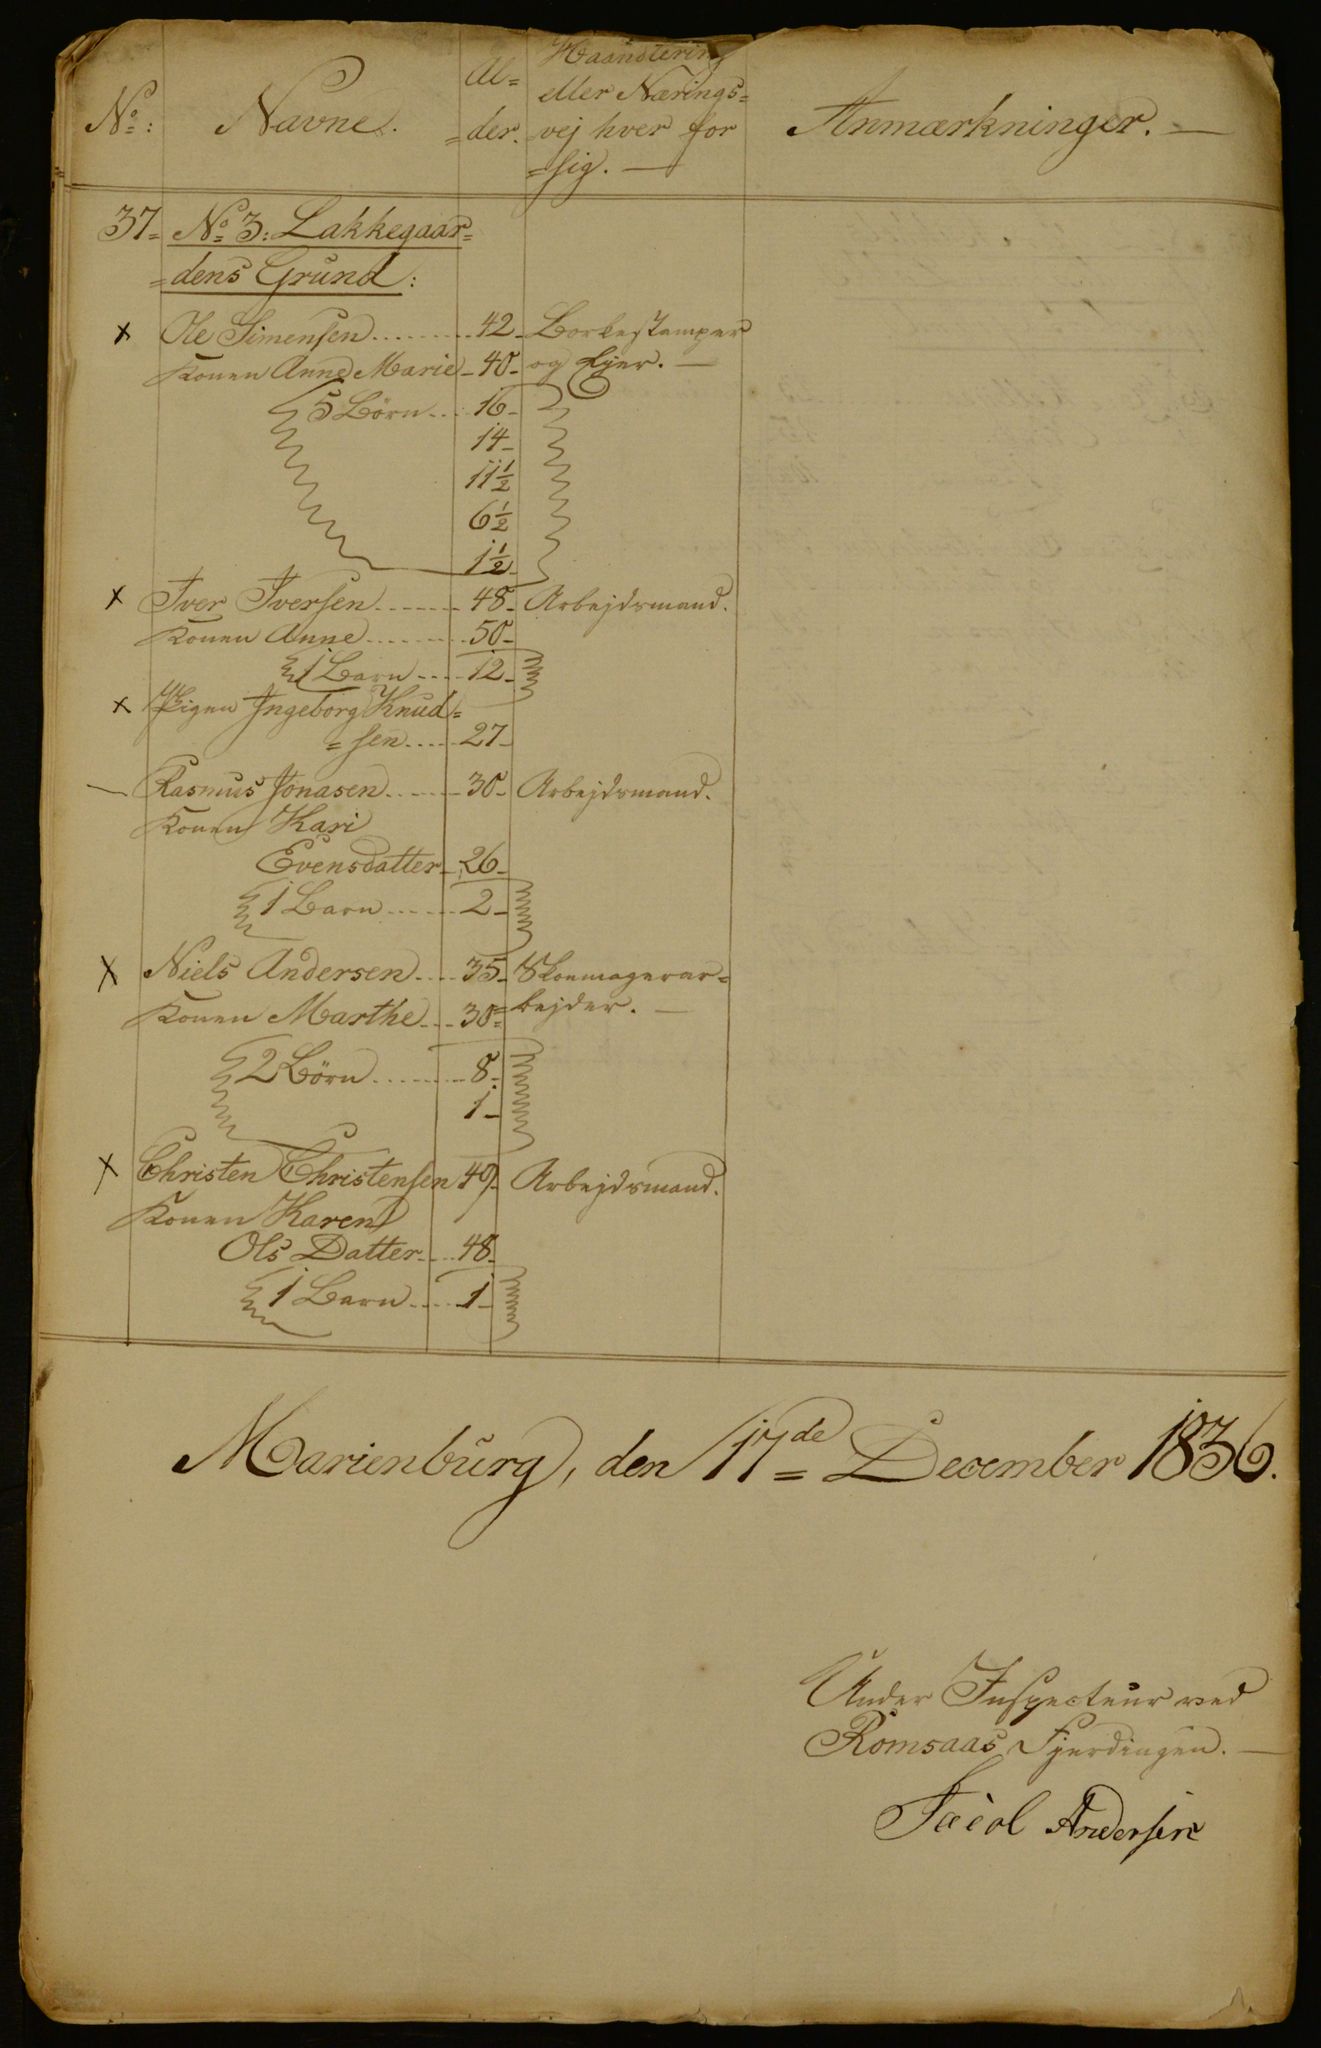 No: Navne. Al= Haandtering Anmærkninger. —
=der. eller Nærings=
vej hver for
=sig. —
37= No 3: Lakkegaar=
=dens Grund:
x Ole Simensen 42 Borkestamper
Konen Anne Marie 40 og Ejer. —
5 Börn 16
14
11½
6½
1½
x Iver Iversen 48 Arbejdsmand.
Konen Anne 50
1 Barn 12
x Pigen Ingeborg Knud=
=sen 27
— Rasmus Jonasen 30 Arbejdsmand.
Konen Kari
Evensdatter 26
1 Barn 2
x Niels Andersen 35 Skoemagerar=
Konen Marthe 30 =bejder. —
2 Börn 8
1
x Christen Christensen 49 Arbejdsmand.
Konen Karen
Ols Datter 48
1 Barn 1
Marienburg, den 17de December 1836.
Under Inspecteur ved
Romsaas Fjerdingen. —
Jacob Andersen